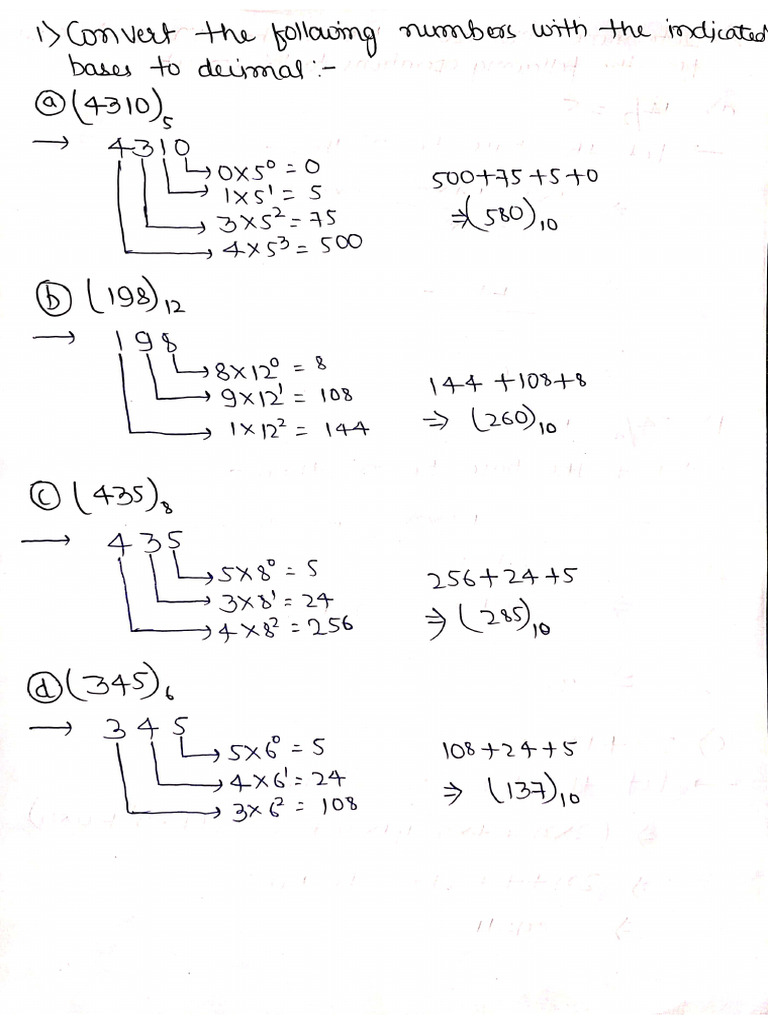 1) Convert the following numbers with the indicated
bases to decimal :-
ⓐ (4310)₅
→ 4 3 1 0
0×5⁰ = 0
1×5¹ = 5
3×5² = 75
4×5³ = 500
500+75+5+0
⇒ (580)₁₀
ⓑ (198)₁₂
→ 1 9 8
8×12⁰ = 8
9×12¹ = 108
1×12² = 144
144+108+8
⇒ (260)₁₀
ⓒ (435)₈
→ 4 3 5
5×8⁰ = 5
3×8¹ = 24
4×8² = 256
256+24+5
⇒ (285)₁₀
ⓓ (345)₆
→ 3 4 5
5×6⁰ = 5
4×6¹ = 24
3×6² = 108
108+24+5
⇒ (137)₁₀